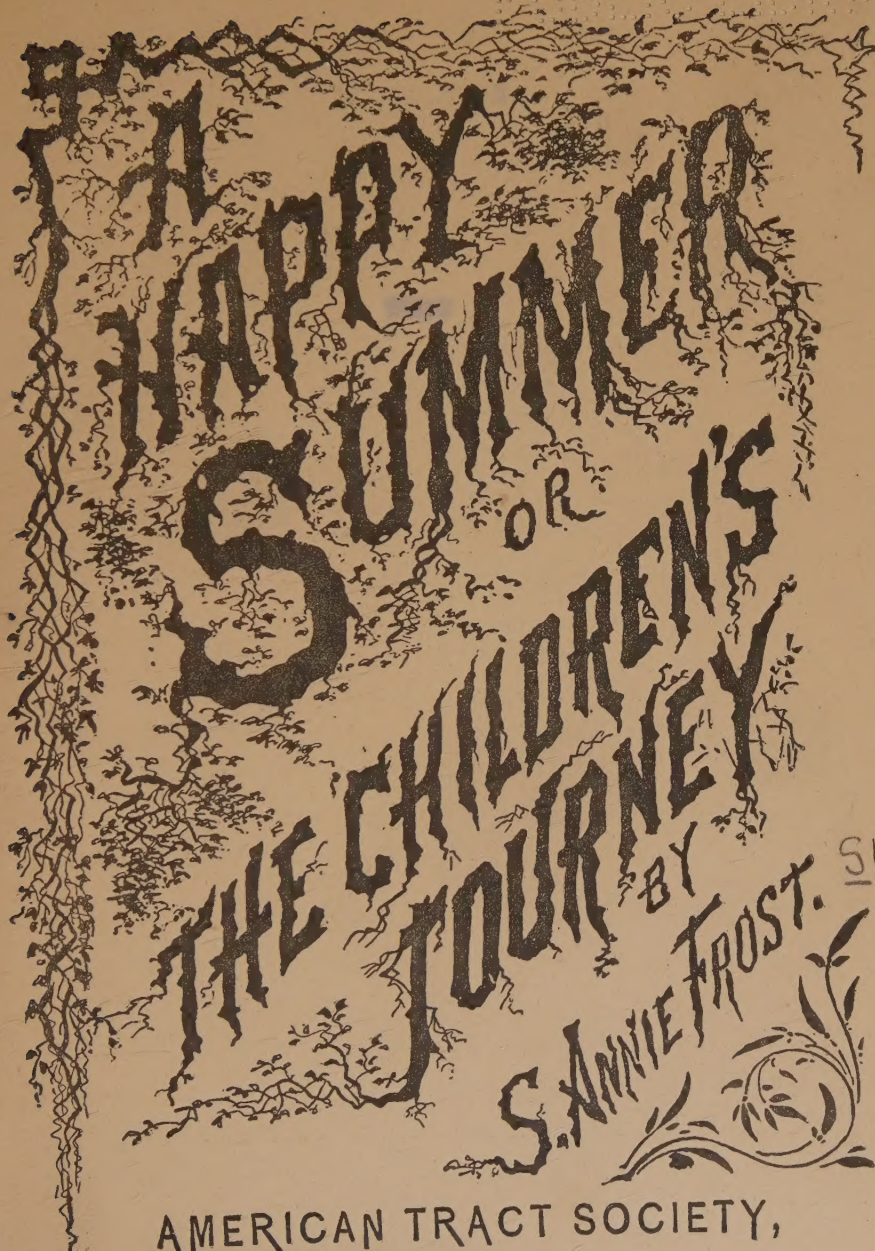 A
HAPPY
SUMMER
OR
THE CHILDREN'S
JOURNEY
BY
S. ANNIE FROST.
AMERICAN TRACT SOCIETY,